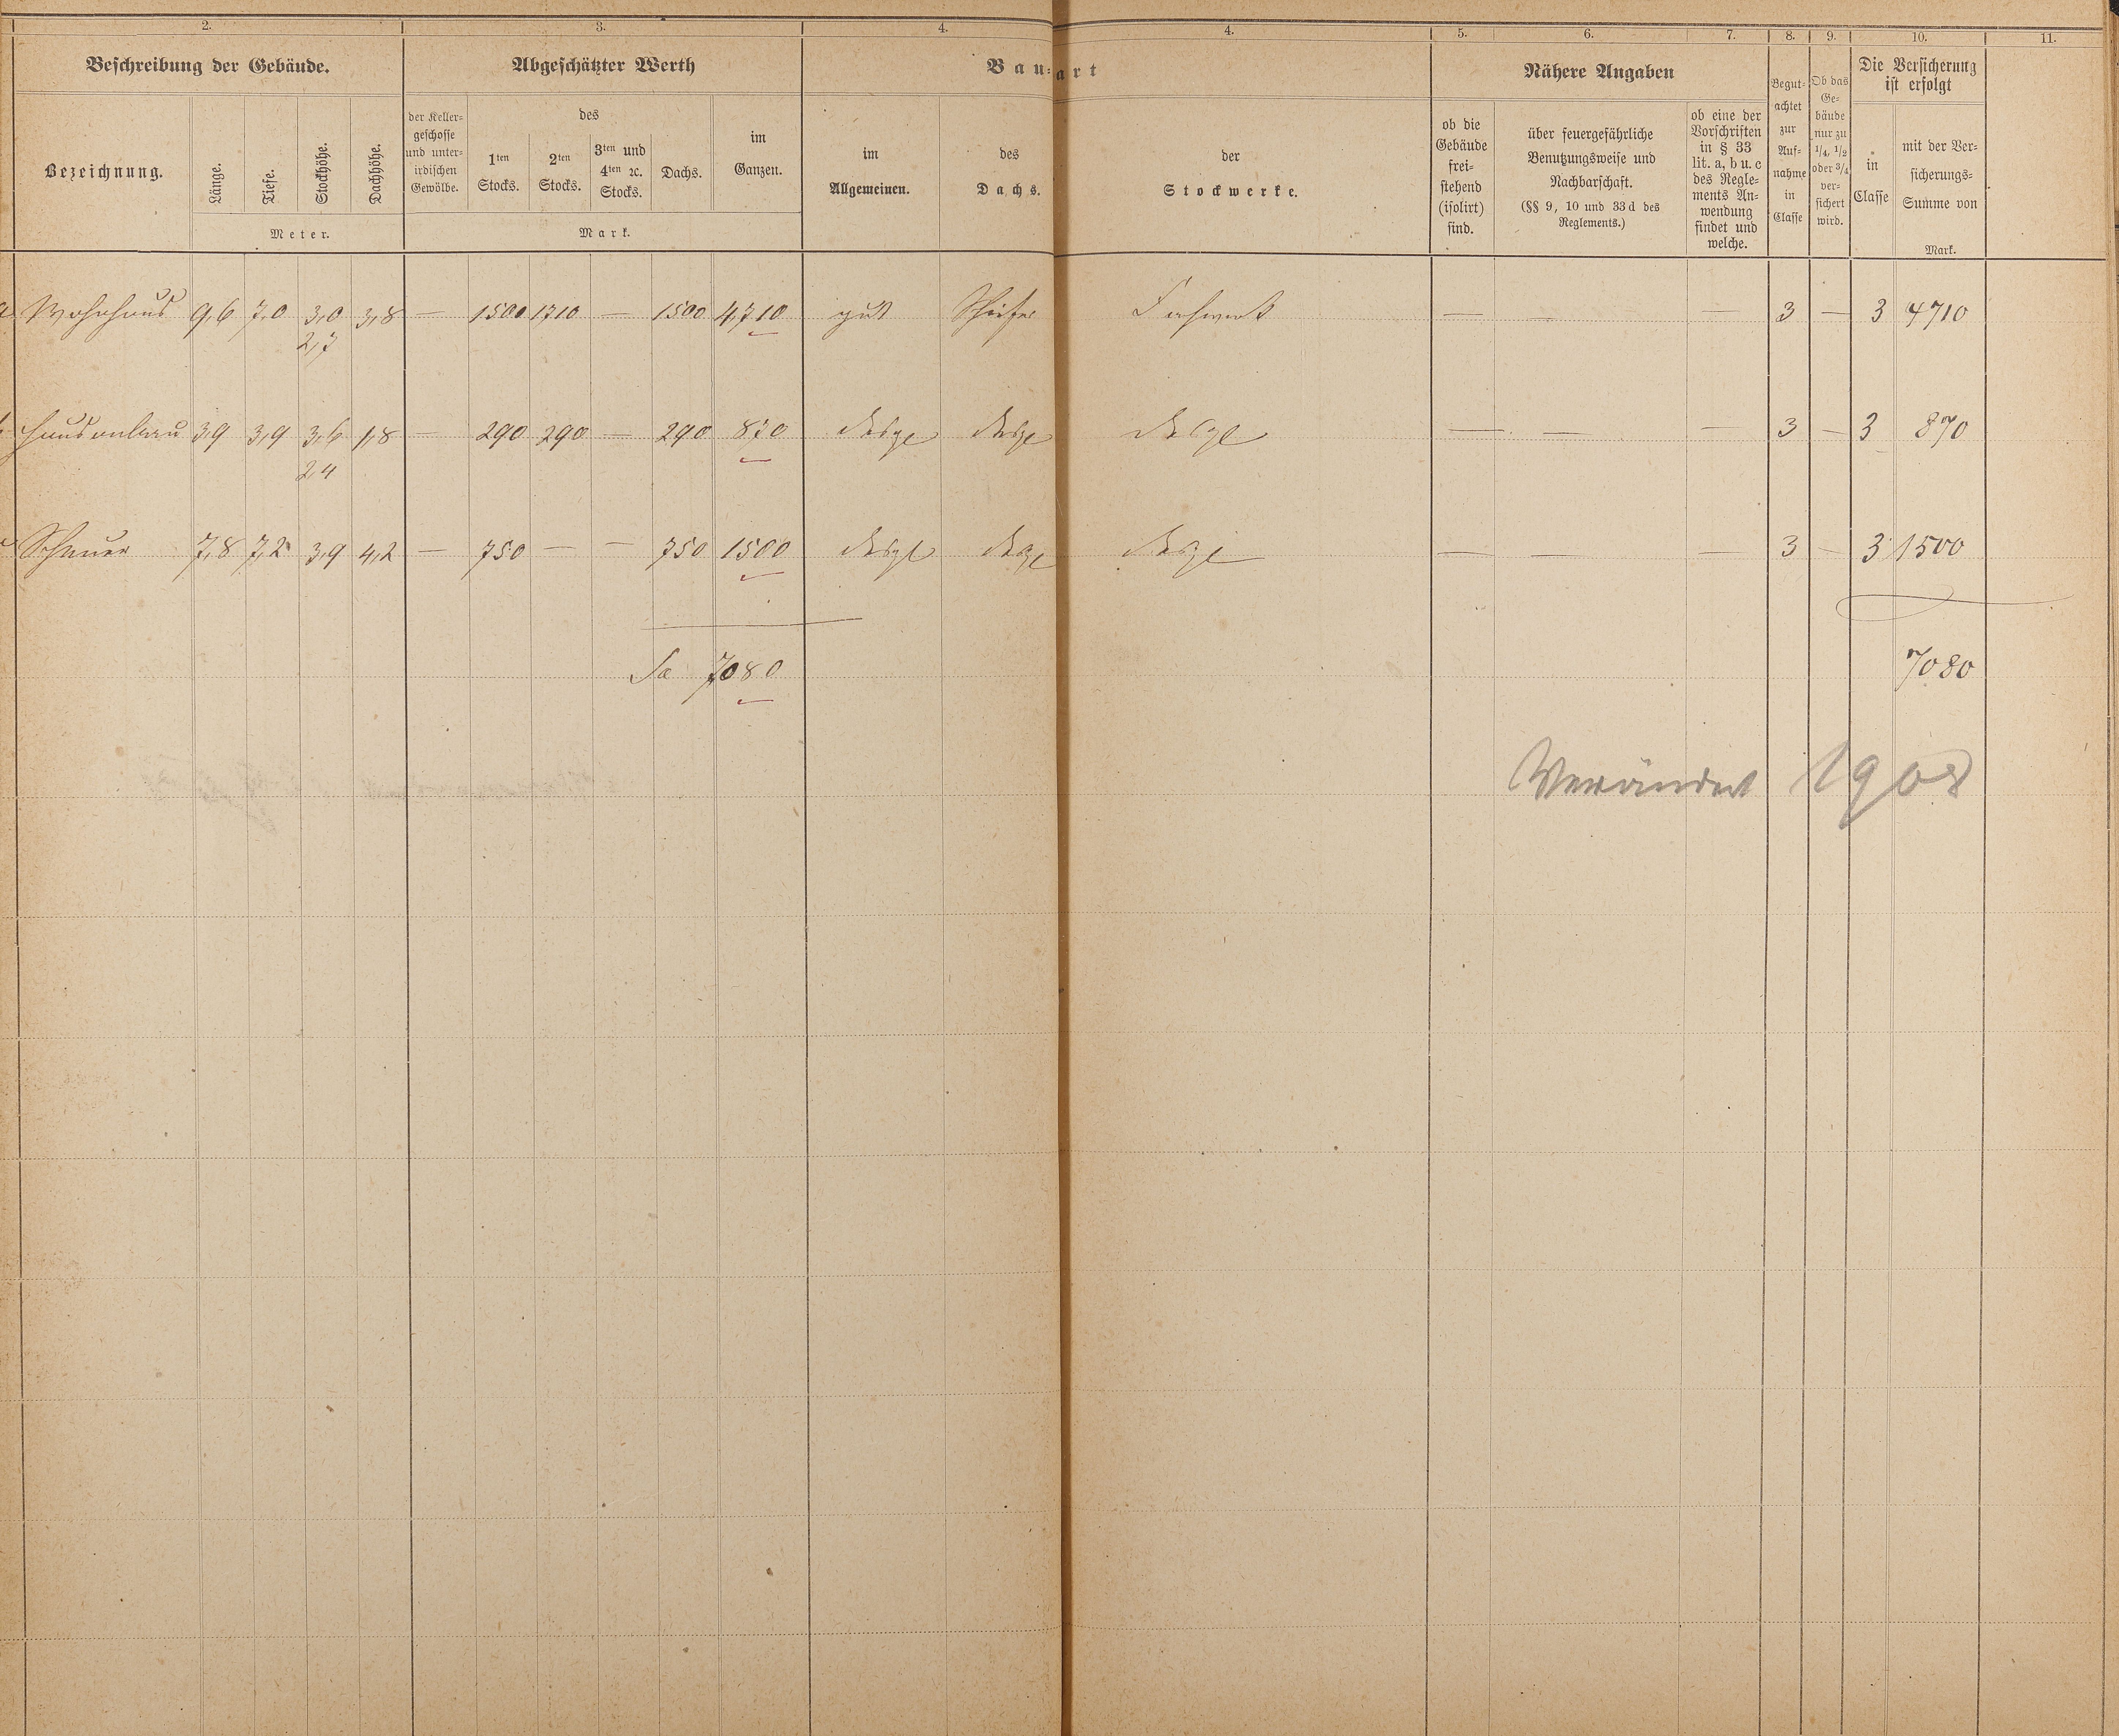 2. 3. 4. 4. 5. 6. 7. 8. 9. 10. 11.
Beschreibung der Gebäude.
Abgeschätzter Werth
Bau-art
Nähere Angaben
Begut-
achtet
zur
Auf-
nahme
in
Classe
Ob das
Ge-
bäude
nur zu
1/4, 1/2
oder 3/4
ver-
sichert
wird.
Die Versicherung
ist erfolgt
Bezeichnung.
Länge.
Tiefe.
Stockhöhe.
Dachhöhe.
Meter.
der Keller-
geschosse
und unter-
irdischen
Gewölbe.
des
1ten
Stocks.
2ten
Stocks.
3ten und
4ten ꝛc.
Stocks.
Dachs.
im
Ganzen.
Mark.
im
Allgemeinen.
des
Dachs.
der
Stockwerke.
ob die
Gebäude
frei-
stehend
(isolirt)
sind.
über feuergefährliche
Benutzungsweise und
Nachbarschaft.
(§§ 9, 10 und 33d des
Reglements.)
ob eine der
Vorschriften
in § 33
lit. a, b u. c
des Regle-
ments An-
wendung
findet und
welche.
in
Classe
mit der Ver-
sicherungs-
Summe von
Mark.
a Wohnhaus 9,6 7,0 3,0 3,8 — 1500 1710 — 1500 4,710 gut Schiefer Fachwerk — — — 3 — 3 4710
2,7
Hausanbau 3,9 3,9 3,6 1,8 — 290 290 — 290 870 desgl desgl desgl — — — 3 — 3 870
2,4
c Scheuer 7,8 7,2 3,9 4,2 — 750 — — 750 1500 desgl desgl desgl — — — 3 — 3 1500
Sa 7080 7080
Verändert 1908